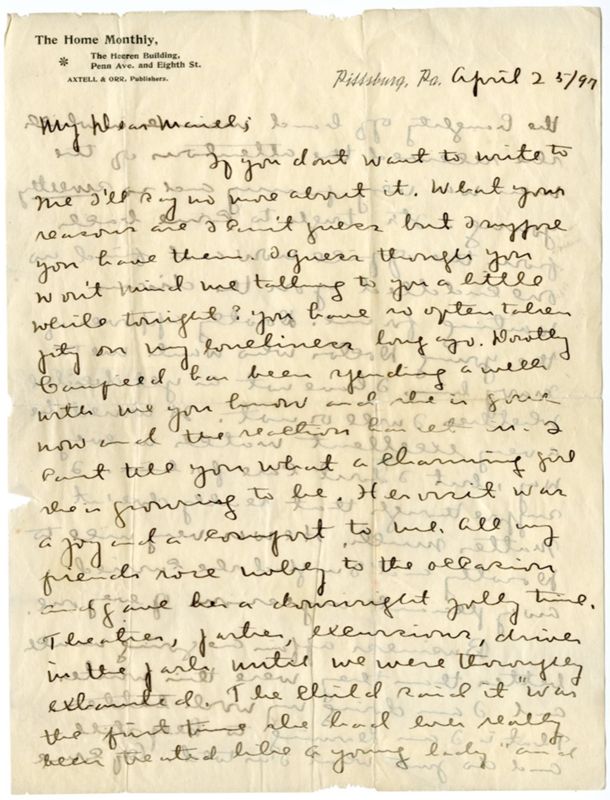 The Home Monthly,
The Heeren Building,
Penn Ave. and Eighth St.
AXTELL & ORR, Publishers.
Pittsburg, Pa. April 25/97
My Dear Mariel;
If you dont want to write to
me I'll say no more about it. What your
reasons are I can't guess but I suppose
you have them. I guess though you
won't mind me talking to you a little
while tonight? You have so often taken
pity on my loneliness long ago. Dorothy
Canfield has been spending a week
with me you know and she is gone
now and the reaction has set in. I
cant tell you what a charming girl
she is growing to be. Her visit was
a joy and a comfort to me. All my
friends rose nobly to the occasion
and gave her a downright jolly time.
Theatres, parties, excursions, drives
in the park until we were thoroughly
exhausted. The child said it "was
the first time she had ever really
been treated like a young lady" and